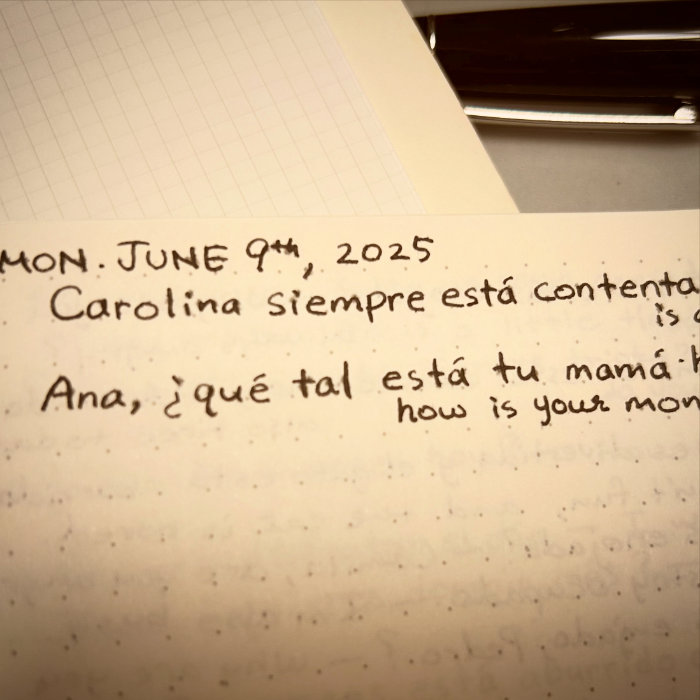 MON. JUNE 9th, 2025
Carolina siempre está contenta
is
Ana, ¿qué tal está tu mamá
how is your mom